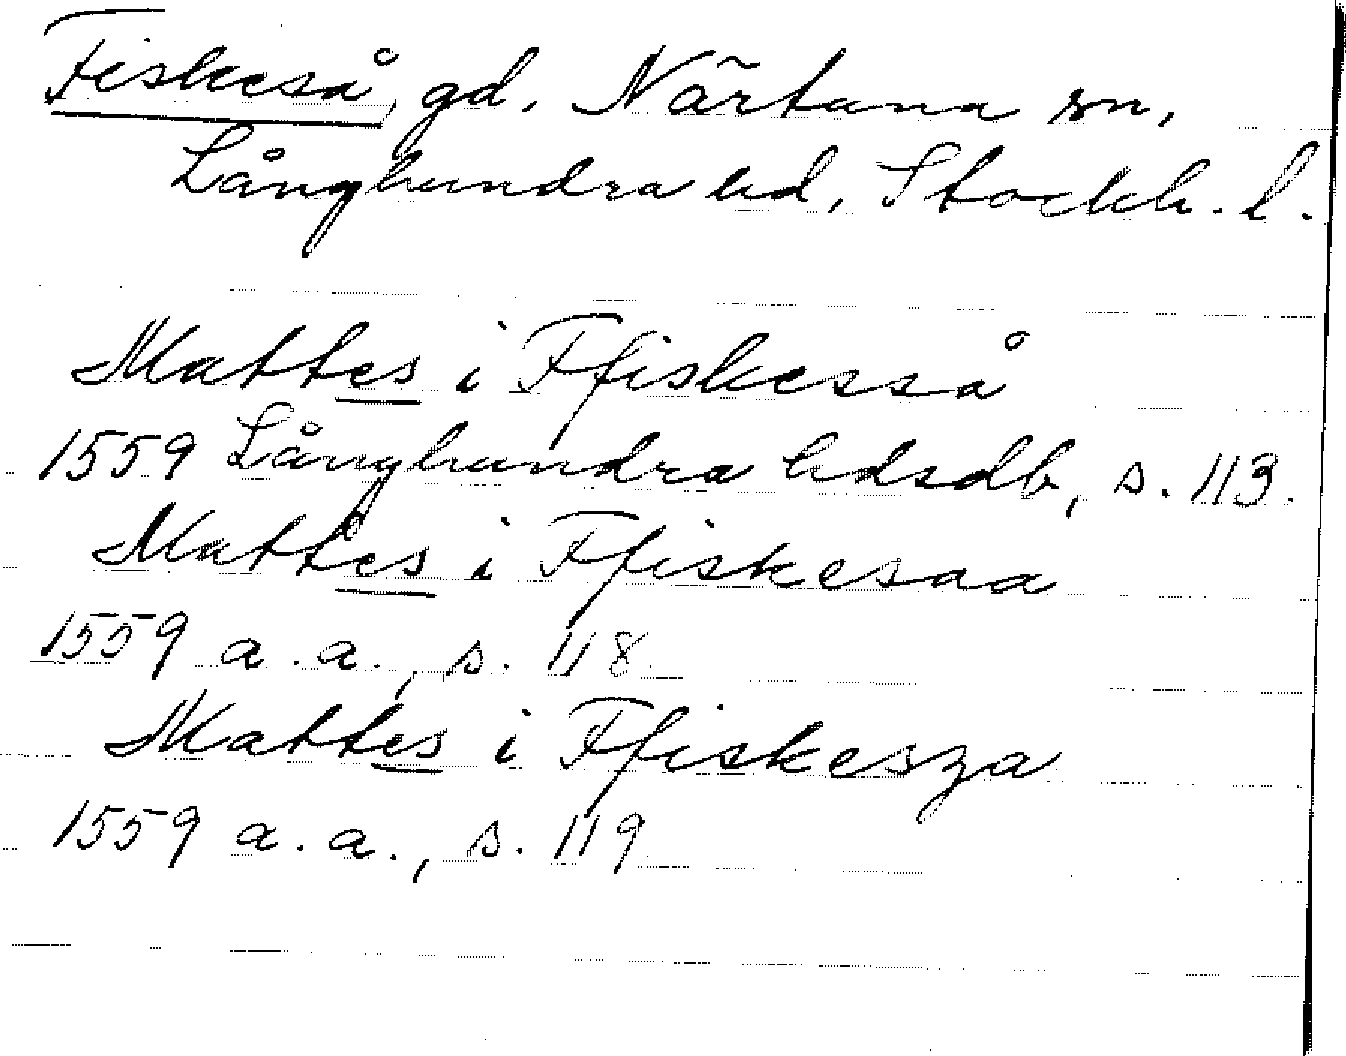 Fiskeså, gd. Närtuna sn,
Långhundra hd, Stockh. l.
Mattes i Ffiskesså
1559 Långhundra hdsdb, s. 113.
Mattes i Ffiskesaa
1559 a.a., s. 118
Mattes i Ffiskesza
1559 a.a., s. 119